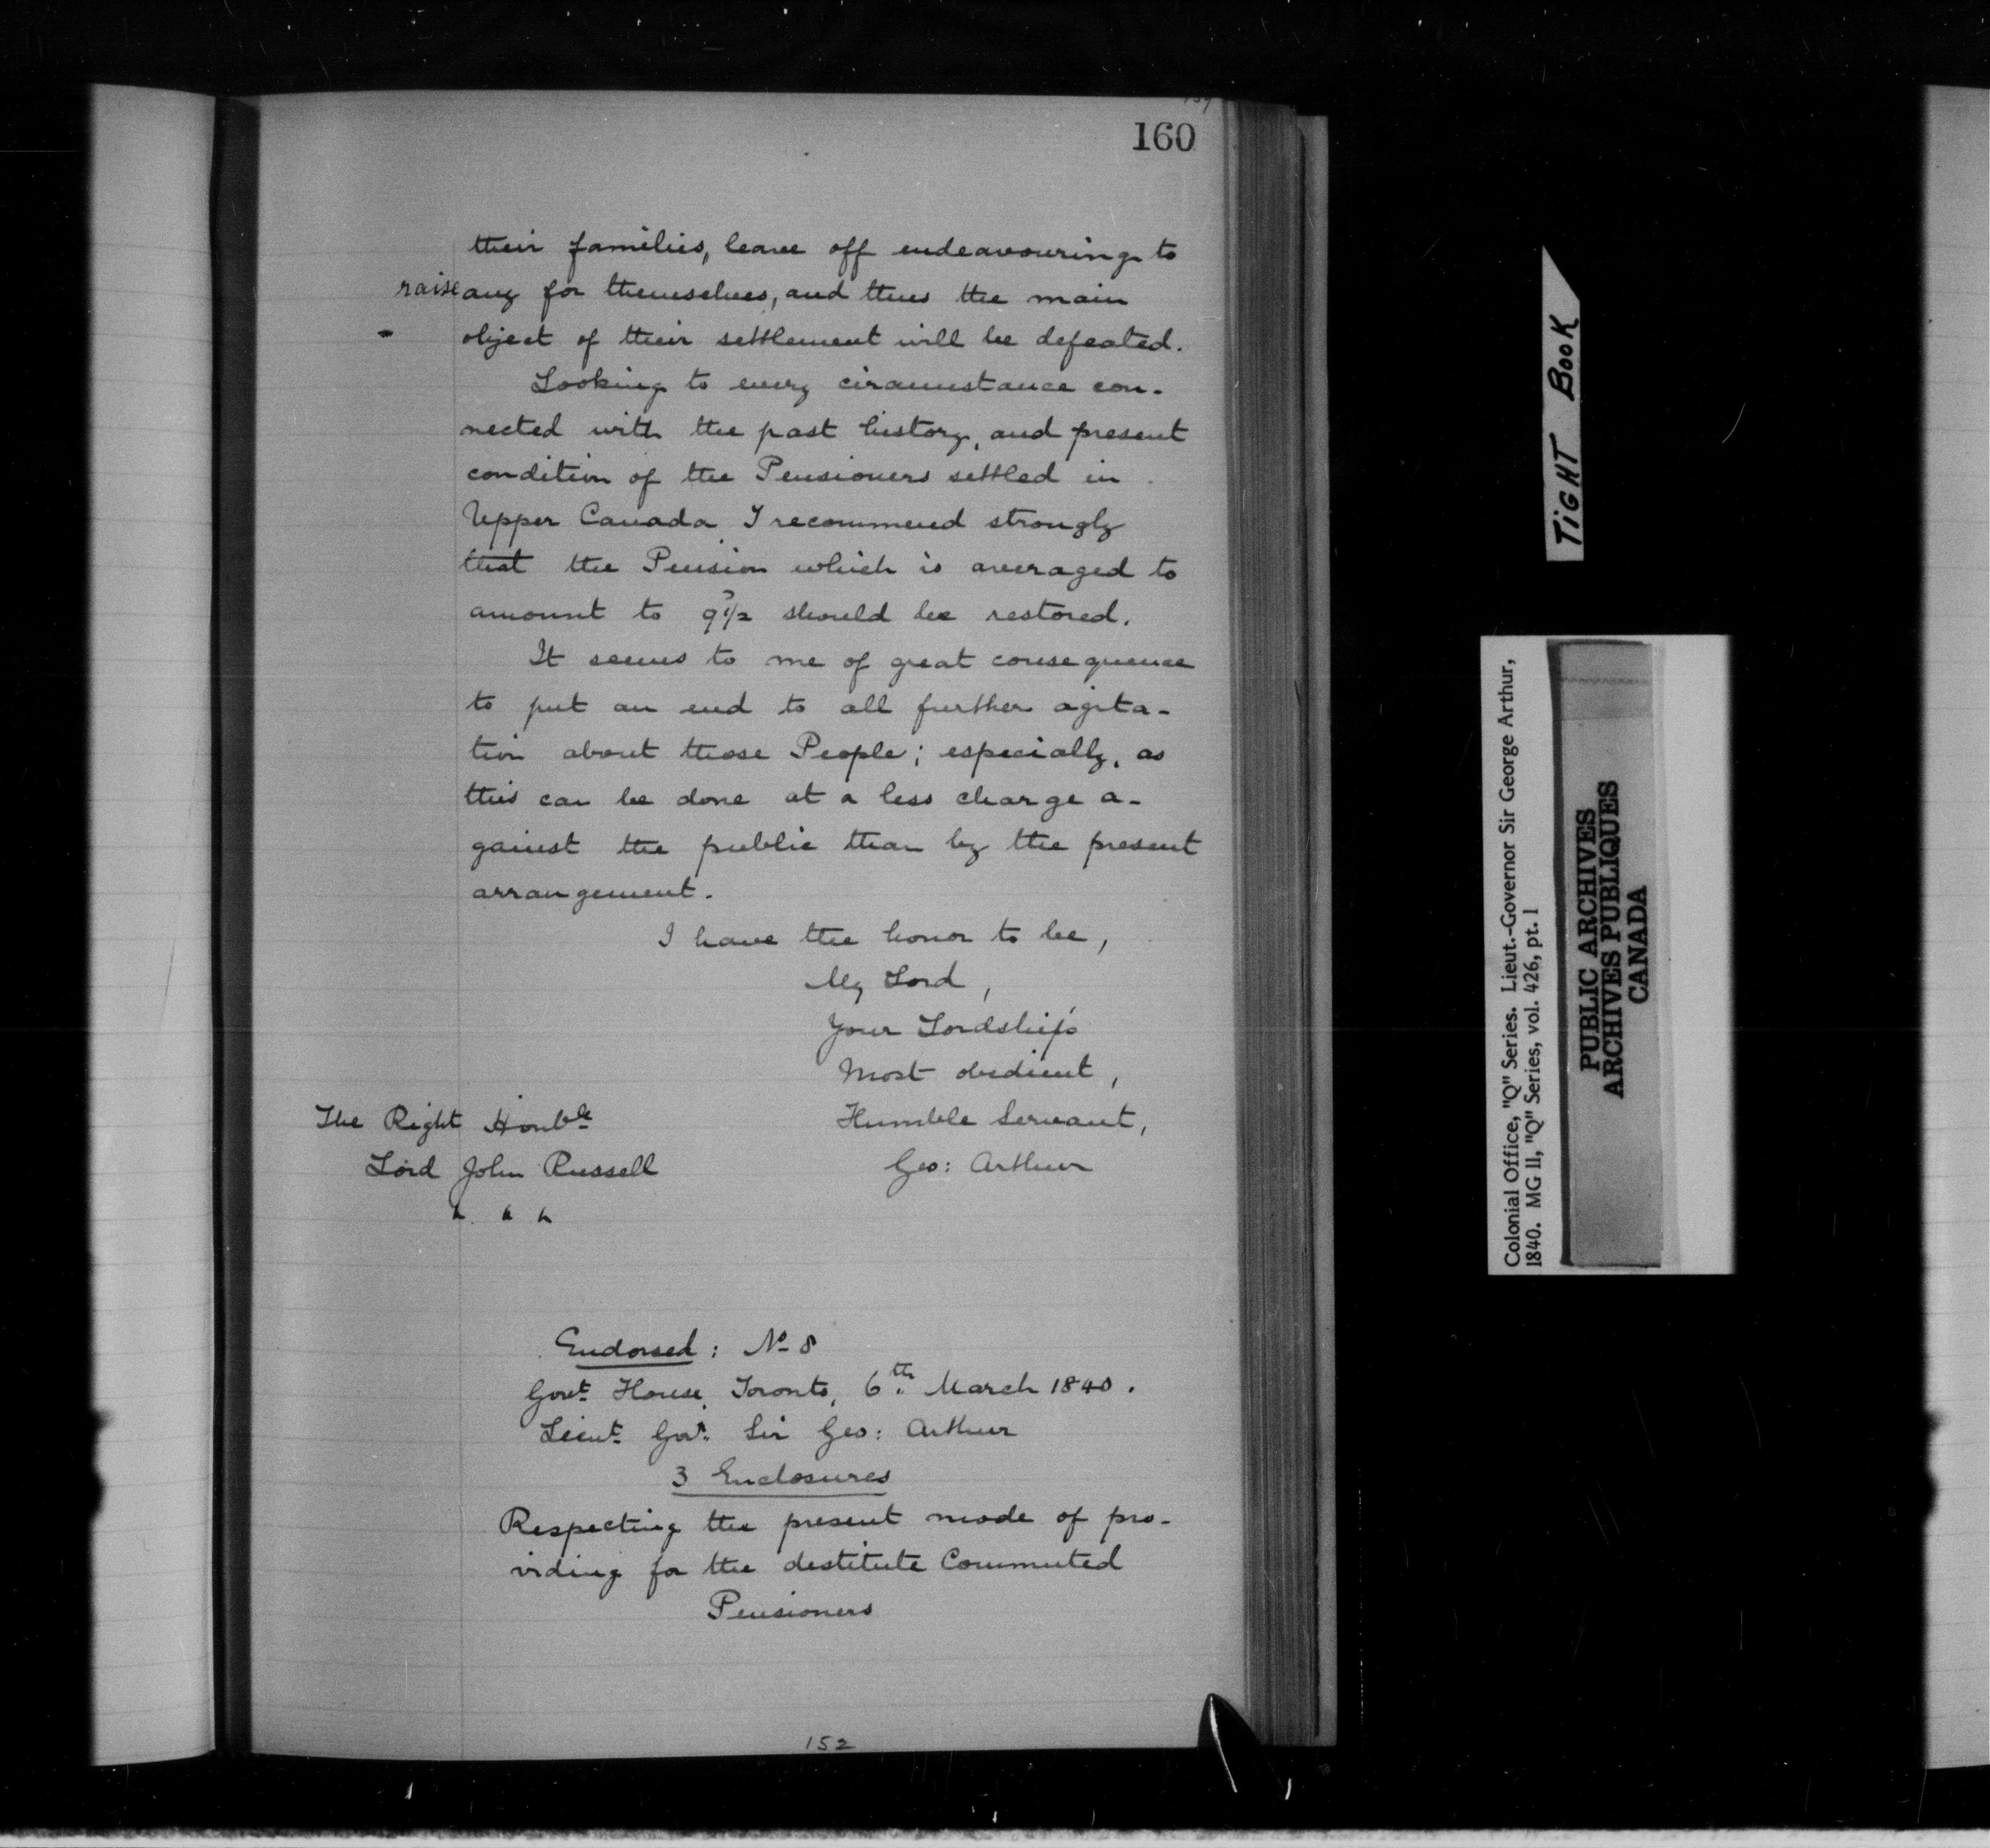 160
their families, leave off endeavouring to
raise any for themselves, and thus the main
object of their settlement will be defeated.
Looking to every circumstance con-
nected with the past history, and present
condition of the Pensioners settled in
Upper Canada, I recommend strongly
that the Pension which is averaged to
amount to should be restored.
It seems to me of great consequence
to put an end to all further agita-
tion about those People; especially, as
this can be done at a less charge a-
gainst the public than by the present
arrangement.
I have the honor to be,
My Lord,
Your Lordship's
Most obedient,
Humble Servant,
Geo: Arthur
The Right Honble
Lord John Russell
Endorsed: No 8
Govt House, Toronto, 6th March 1840.
Lieut Govr Sir Geo: Arthur
3 Enclosures
Respecting the present mode of pro-
viding for the destitute Commuted
Pensioners
152
TIGHT BOOK
Colonial Office, "Q" Series. Lieut.-Governor Sir George Arthur,
1840. MG 11, "Q" Series, vol. 426, pt. 1
PUBLIC ARCHIVES
ARCHIVES PUBLIQUES
CANADA